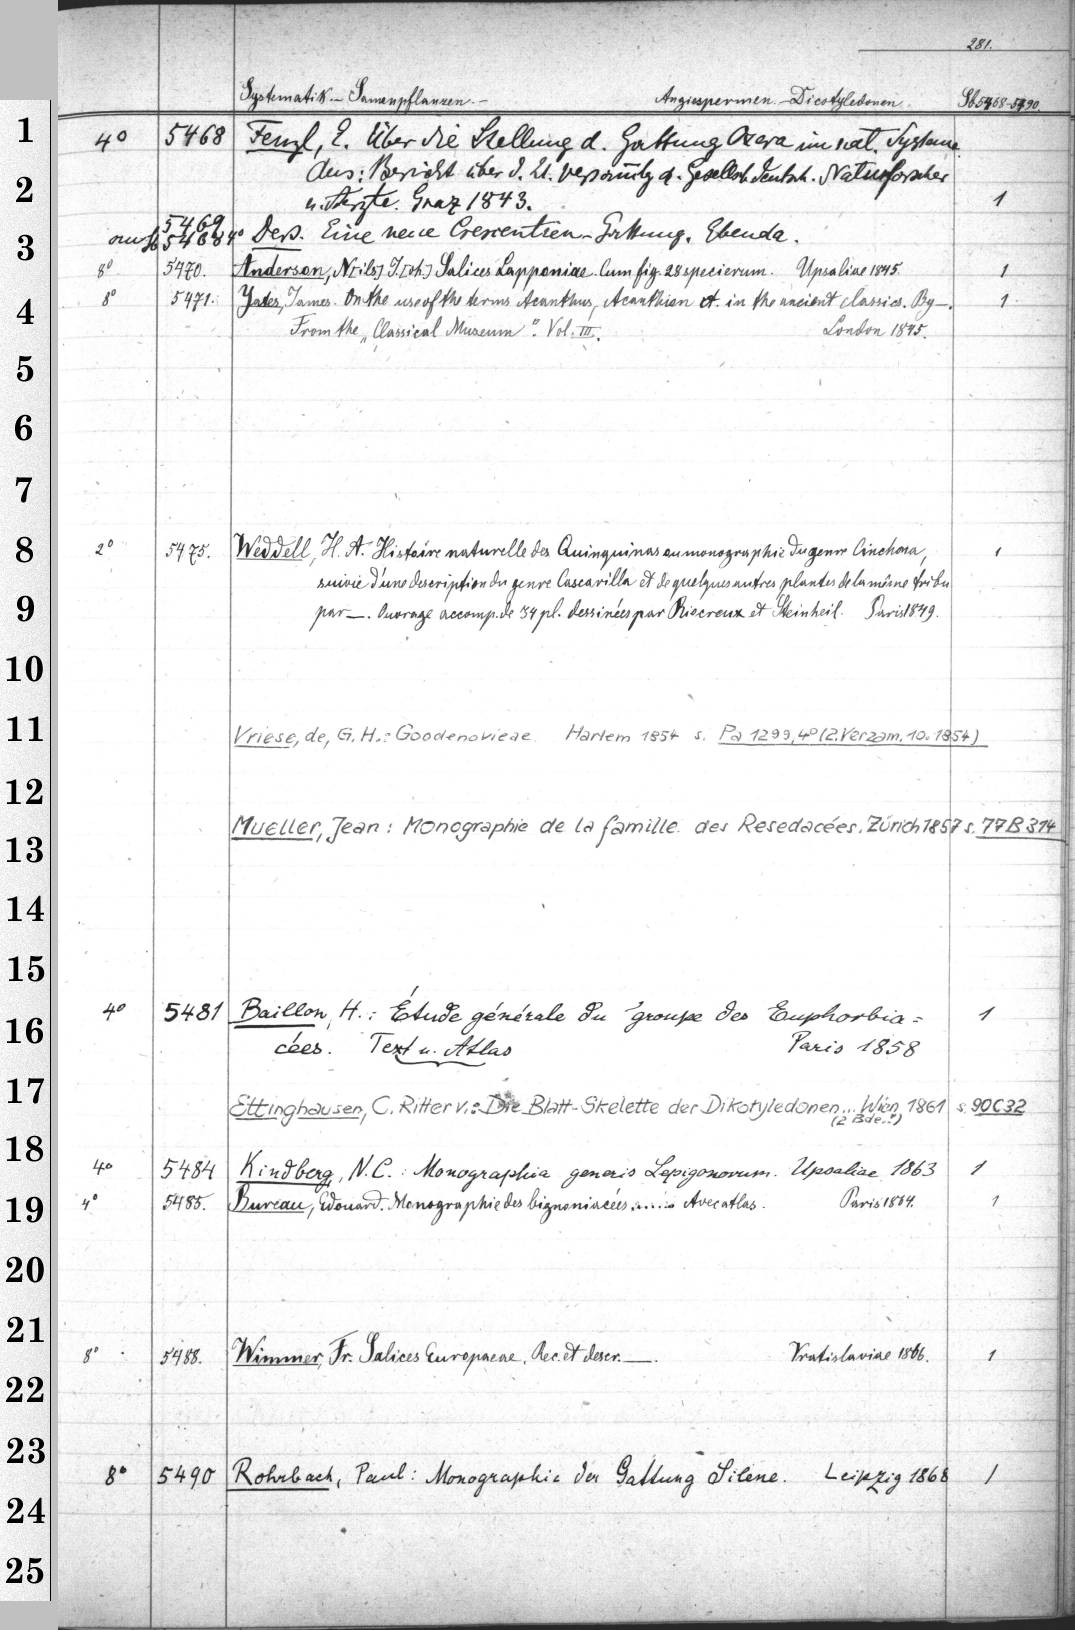 281.
Systematik. – Samenpflanzen. – Angiospermen. – Dicotyledonen. Sb 5468-5490
1
4° 5468 Fenzl, E. Über die Stellung d. Gattung Oxera im nat. Systeme.
Aus: Bericht über d. 21. Versamlg d. Gesellsch. deutsch. Naturforscher
2
u. Aerzte. Graz 1843. 1
5469
3
an Sb 5468 4° Ders. Eine neue Crescentieen-Gattung. Ebenda.
8° 5470. Anderson, N[ils] J.[oh.] Salices Lapponiae. Cum fig. 28 specierum. Upsaliae 1845. 1
4
8° 5471. Yates, James. On the use of the terms Acanthus, Acanthion et. in the ancient classics. By —. 1
From the „Classical Museum". Vol. III. London 1845.
5
6
7
8
2° 5475. Weddell, H. A. Histoire naturelle des Quinquinas ou monographie du genre Cinchona, 1
suivie d'une description du genre Cascarilla et de quelques autres plantes de la même tribu
9
par —. Ouvrage accomp. de 34 pl. dessinées par Riocreux et Steinheil. Paris 1849.
10
11
Vriese, de, G. H.: Goodenovieae Harlem 1854 s. Pa 1299, 4° (2. Verzam. 10. 1854)
12
Mueller, Jean: Monographie de la famille des Resedacées. Zürich 1857 s. 77 B 314
13
14
15
4° 5481 Baillon, H.: Étude générale du groupe des Euphorbia= 1
16
cées. Text u. Atlas Paris 1858
17
Ettinghausen, C. Ritter v.: Die Blatt-Skelette der Dikotyledonen... Wien 1861 s. 90 C 32
(2 Bde..")
18
4° 5484 Kindberg, N. C.: Monographia generis Lepigonorum. Upsaliae 1863 1
19
4° 5485. Bureau, Edouard. Monographie des bignoniacées ...... Avec atlas. Paris 1864. 1
20
21
8° 5488. Wimmer, Fr. Salices Europaeae. Rec. et descr. —. Vratislaviae 1866. 1
22
23
8° 5490 Rohrbach, Paul: Monographie der Gattung Silene. Leipzig 1868 1
24
25